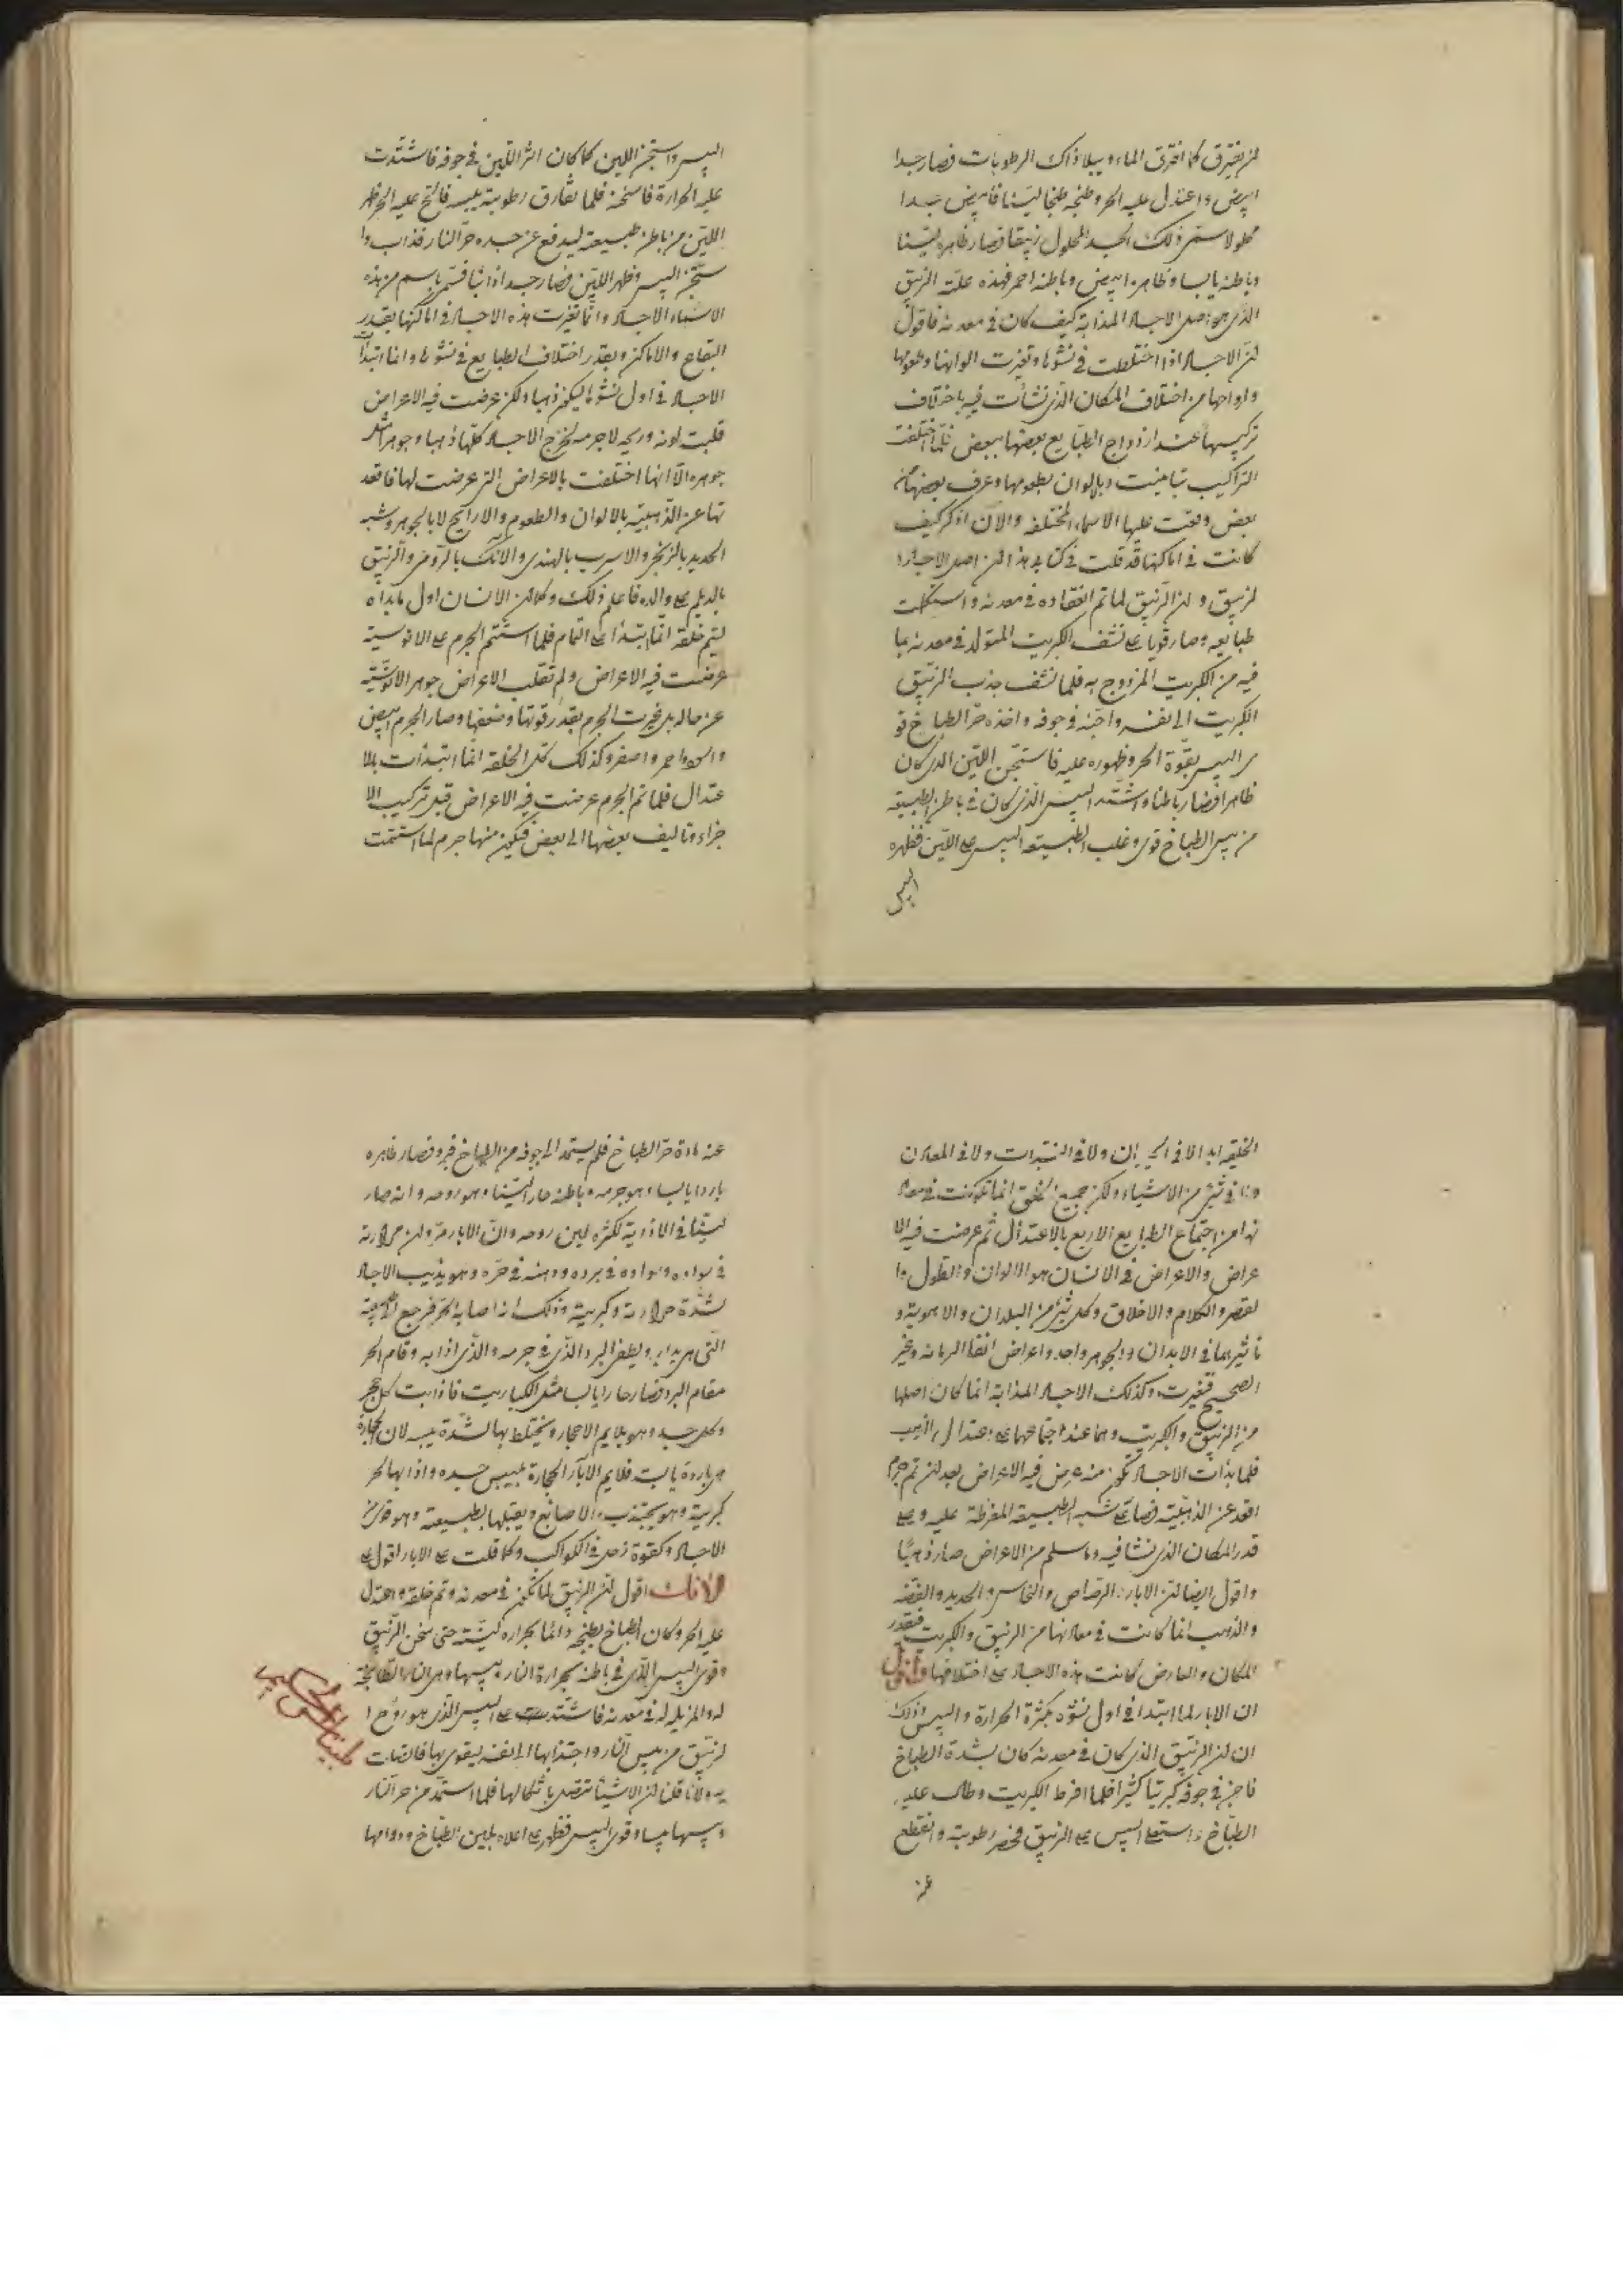 لن يفترق كما افترق الماء وييلا ذاك الرطوبات فصار جسدا
ابيض واعتدل عليه الحر وطبخه طبخا لينا فابيض جسدا
محلولا ستر ذلك الجسد المحلول زيبقا فصار ظاهره لينا
وباطنه يابسا وظاهره ابيض وباطنه احمر فهذه علة الزيبق
الذي هو اصل الاجساد المذابة كيف كان في معدنه فاقول
لن الاجساد اذا اختلطت في نشوها وتغيرت الوانها وطعومها
وارواحها من اختلاف المكان الذي نشات فيه باختلاف
تركيبها عند ازدواج الطبايع بعضها ببعض فلما اختلفت
التراكيب تباينت وبالالوان بطعومها وعرف بعضها من
بعض وقعت عليها الاسماء المختلفة والان اذكر كيف
كانت في اماكنها قد قلت في كتابي هذا لن اصل الاجساد
لزيبق ولن الزيبق لما تم انعقاده في معدنه واستكملت
طبايعه وصار قويا على نشف الكبريت المتولد في معدنه بما
فيه من الكبريت المزدوج به فلما نشف جذب الزيبق
الكبريت الى نفسه واجنه في جوفه واخذه حر الطباخ قو
ى اليبس بقوة الحر وظهوره عليه فاستجن اللين الذي كان
ظاهرا فصار باطنا واشتد اليبس الذي كان في باطن الطبيعة
من يبس الطباخ قوى وغلب الطبيعة اليبس على اللين فظهره
اليبس
اليبس واستجن اللين كما كان اثر اللين في جوفه فاشتدت
عليه الحرارة فاسخنه فلما تفارق رطوبته يبسه فالح عليه الحر ظهر
اللين من باطن طبيعته ليدفع عن جسده حر النار فذاب وا
ستجن اليبس وظهر اللين فصار جسدا ذائبا فسمي باسم من هذه
الاسماء الاجساد وانما تغيرت هذه الاجساد في اماكنها بقدر
البقاع والاماكن وبقدر اختلاف الطبايع في نشوها وانما ابتدا
الاجساد في اول نشوها ليكون ذهبا ولكن عرضت فيه الاعراض
قلبت لونه وريحه لا جرمه لخرج الاجساد كلها ذهبا وجوهرا مثل
جوهره الا انها اختلفت بالاعراض التي عرضت لها فاقعد
تها عن الذهبية بالالوان والطعوم والاراييح لا بالجوهر وشبه
الحديد بالزنجي والاسرب بالهندي والانك بالرومي والزيبق
بالديلمي والده فاعلم ذلك وكما لن الانسان اول ما بداه
ليتم خلقه انما يبتدا على التمام فلما استتم الجرم على الانوسية
عرضت فيه الاعراض ولم تقلب الاعراض جوهر الانوسية
عن حاله بل غيرت الجرم بقدر قوتها وضعفها وصار الجرم ابيض
واسود واحمر واصفر وكذلك كل الخلقة انما ابتدأت بالا
عتدال فلما تم الجرم عرضت فيه الاعراض قبل تركيب الا
جزاء وتاليف بعضها الى بعض فيكون منها جرم لما استتمت
الخليقه ابدا لا في الحيوان ولا في النبات ولا في المعادن
ولا في شيء من الاشياء ولكن جميع الخلق انما تكونت في معاد
نها من اجتماع الطبايع الاربع بالاعتدال ثم عرضت فيه الا
عراض والاعراض في الانسان هو الالوان والطول وا
لقصر والكلام والاخلاق وكل شيء من البلدان والاهوية و
تاثيرها في الابدان والجوهر واحد واعراض
الصحيح فتغيرت وكذلك الاجساد المذابة انما كان اصلها
من الزيبق والكبريت وهما عند اجتماعهما على اعتدال الذهب
فلما بدات الاجساد تكون منه عرض فيه الاعراض بعد لن تم جرم
اقعد عن الذهبية فصار على شبه الطبيعة المفرطة عليه وعلى
قدر المكان الذي نشا فيه وما سلم من الاعراض صار ذهبا
واقول ايضا لن الابار والرصاص والنحاس والحديد والفضه
والذهب انما كانت في معادنها من الزيبق والكبريت فبقدر
المكان والعارض كانت هذه الاجساد على اختلافها واقول
ان الابار لما ابتدا في اول نشوه بكثرة الحرارة واليبس وذلك
ان لن الزيبق الذي كان في معدنه كان بشدة الطباخ
فاجن في جوفه كبريتا كثيرا فلما افرط الكبريت وطال عليه
الطباخ واستعلى اليبس على الزيبق فحصر رطوبته وانقطع
عن
عنه مادة حر الطباخ فلم يستمد الى جوفه من الطباخ فبرد فصار ظاهره
باردا يابسا وهو جرمه وباطنه حارا لينا وهو روحه وانه صار
لينا في الاذوبة لكثرة لين روحه وان الابار مر ولن مرارته
في سواده وسواده في برده ودهنه في حره وهو يذيب الاجساد
لشدة حرارته وكبريته وذلك اذا اصابه الحر فرجع
التي هي بدايه ويطفي البرد الذي في جرمه والذي اذابه وقام الحر
مقام البرد فصار حارا يابسا مثل الكباريت فاذابت كل حجر
وكل جسد وهو يلايم الاحجار ويختلط بها لشدة يبسه لان الحجارة
هي باردة يابسة فلايم الابار الحجارة بيبس جسده واذابها لحر
كبريته وهو يجتذب الاصابغ ويقبلها بطبيعته وهو قوى من
الاجساد وكقوة زحل في الكواكب وكما قلت على الابار اقول على
الانك اقول لن الزيبق لما تكون في معدنه وتم خلقه واعتدل
عليه الحر وكان الطباخ يطبخه دائما بحرارة لينة حتى سخن الزيبق
وقوى اليبس الذي في باطنه بحرارة النار ويبسها وهي النار الطابخة
له والمزيله له في معدنه فاشتدت على اليبس الذي هو روح ا
لزيبق من يبس النار واجتذابها الى نفسه ليقوى بها فاتصلت
به ولانا قلنا لن الاشياء تتصل باشكالها فلما استمد من حر النار
ويبسها يبسا وقوى اليبس فظهر على اعلاه بلين الطباخ ودوامها